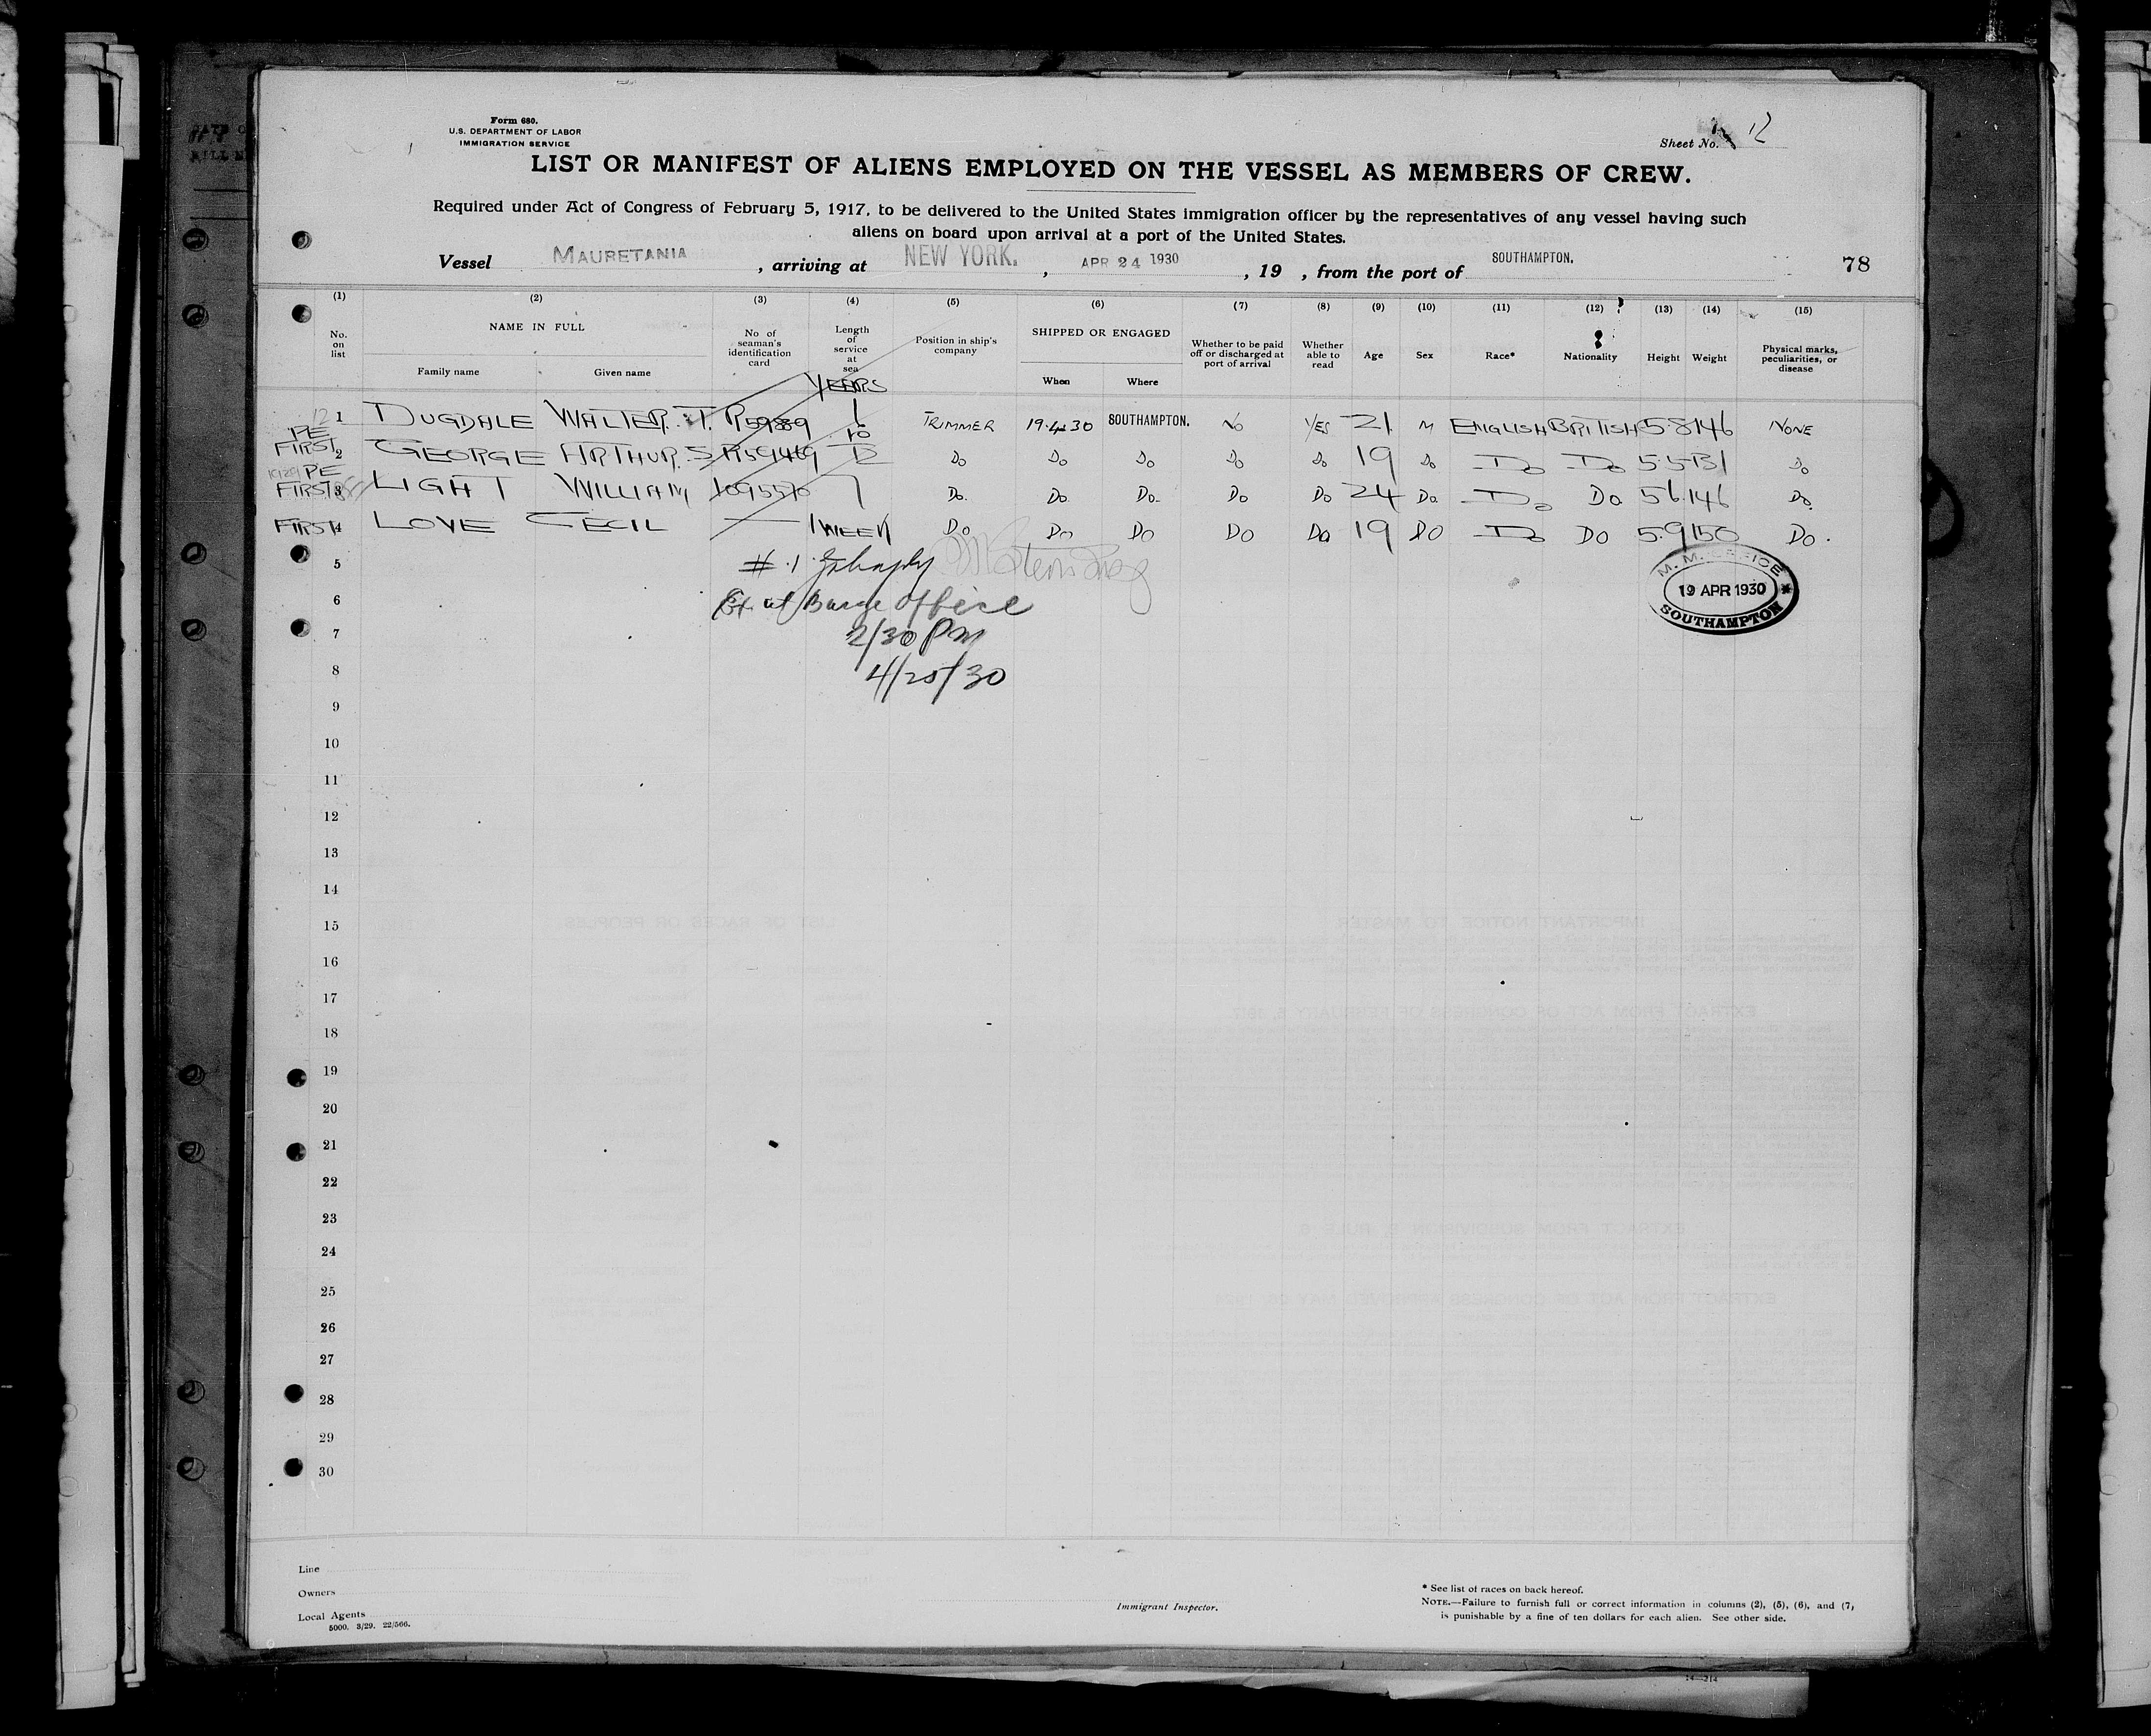 Form 680.
U.S. DEPARTMENT OF LABOR
IMMIGRATION SERVICE
Sheet No. 12
LIST OR MANIFEST OF ALIENS EMPLOYED ON THE VESSEL AS MEMBERS OF CREW.
Required under Act of Congress of February 5, 1917, to be delivered to the United States immigration officer by the representatives of any vessel having such
aliens on board upon arrival at a port of the United States.
Vessel MAURETANIA, arriving at NEW YORK., APR 24 1930, 19 , from the port of SOUTHAMPTON. 78
(1) (2) (3) (4) (5) (6) (7) (8) (9) (10) (11) (12) (13) (14) (15)
No. on list
NAME IN FULL
Family name Given name
No of seaman's identification card
Length of service at sea
Position in ship's company
SHIPPED OR ENGAGED
When Where
Whether to be paid off or discharged at port of arrival
Whether able to read
Age Sex Race* Nationality Height Weight
Physical marks, peculiarities, or disease
YEARS
1 DUGDALE WALTER. T. TRIMMER 19.4.30 SOUTHAMPTON. No YES 21 M ENGLISH BRITISH 5.8 146 NONE
PE FIRST 2 GEORGE ARTHUR. S Do Do Do Do Do 19 Do Do Do 5.5 131 Do
PE FIRST 3 LIGHT WILLIAM 1095570 7 Do. Do Do. Do Do 24 Do Do Do 5.6 146 Do.
FIRST 4 LOVE CECIL — 1 WEEK Do Do Do Do Do 19 Do Do Do 5.9 150 Do.
5 # 1
6 at Barge Office
7 2/30 PM
8 4/25/30
M. M. OFFICE
19 APR 1930
SOUTHAMPTON
9
10
11
12
13
14
15
16
17
18
19
20
21
22
23
24
25
26
27
28
29
30
Line
Owners
Local Agents
5000. 3/29. 22/566.
Immigrant Inspector.
* See list of races on back hereof.
NOTE.—Failure to furnish full or correct information in columns (2), (5), (6), and (7)
is punishable by a fine of ten dollars for each alien. See other side.
14—214